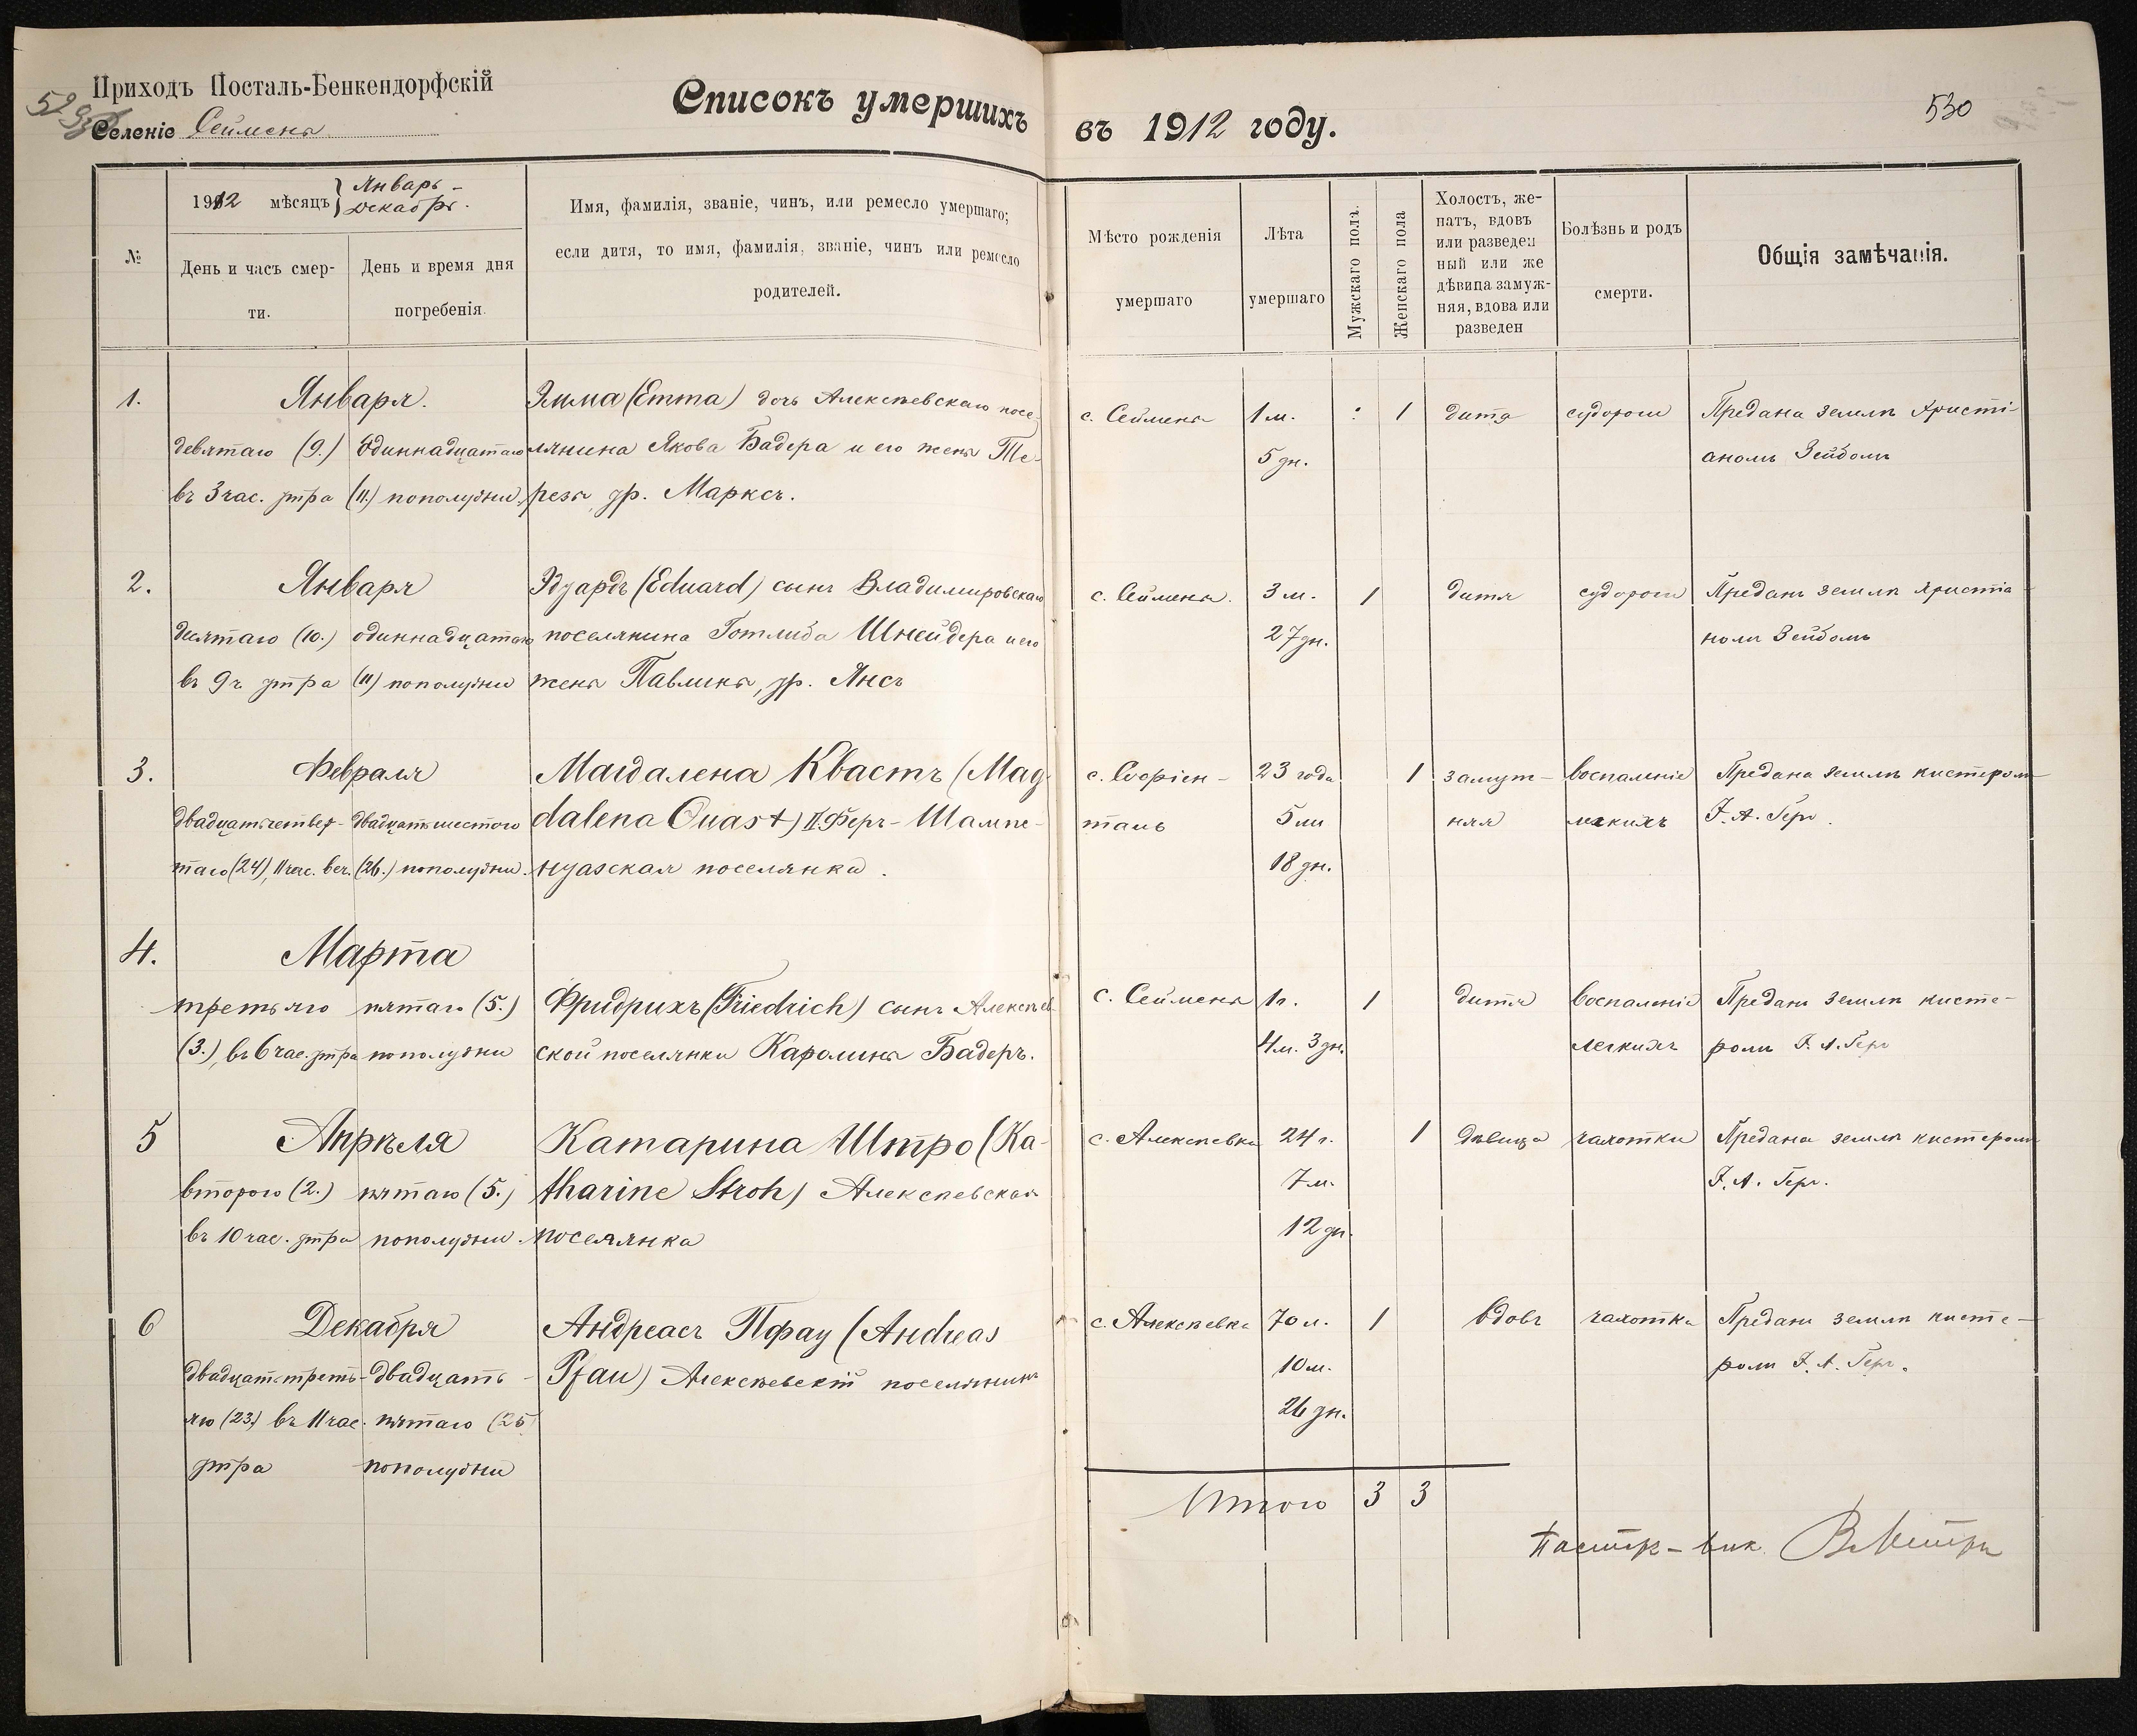 Приходъ Посталь-Бенкендорфскій
Селеніе Сеймены
Списокъ умершихъ въ 1912 году.
530
№
1912 мѣсяцъ Январь - Декабрь.
День и часъ смерти.
День и время дня погребенія.
Имя, фамилія, званіе, чинъ, или ремесло умершаго;
если дитя, то имя, фамилія, званіе, чинъ или ремесло
родителей.
Мѣсто рожденія умершаго
Лѣта умершаго
Мужскаго пола.
Женскаго пола
Холостъ, же-
натъ, вдовъ
или разведен
ный или же
дѣвица замуж-
няя, вдова или
разведен
Болѣзнь и родъ смерти.
Общія замѣчанія.
1.
Января.
девятаго (9.)
въ 3 час. утра
Одиннадцатаго
(11.) пополудни
Эмма (Emma) дочь Алексѣевскаго посе-
лянина Якова Бадера и его жены Те-
резы, ур. Марксъ.
с. Сеймены
1 м.
5 дн.
1
дитя
судороги
Предана землѣ Христі-
аномъ Зейбомъ
2.
Января
десятаго (10.)
въ 9 ч. утра
одиннадцатаго
(11) пополудни
Эдуардъ (Eduard) сынъ Владимировскаго
поселянина Готлиба Шнейдера и его
жены Павлины, ур. Янсъ
с. Сеймены.
3 м.
27 дн.
1
дитя
судороги
Преданъ землѣ Христіа-
номъ Зейбомъ
3.
Февраля
двадцатьчетвер-
таго (24), 11 час. веч.
двадцатьшестого
(26.) пополудни.
Магдалена Квастъ (Mag-
dalena Quast) II. Феръ-Шампе-
нуазская поселянка.
с. Софіен-
таль
23 года
5 м
18 дн.
1
замуж-
няя
воспаленіе
легкихъ
Предана землѣ кистеромъ
Г. А. Геръ.
4.
Марта
третьяго
(3.), въ 6 час. утра
пятаго (5.)
пополудни
Фридрихъ (Friedrich) сынъ Алексѣев-
ской поселянки Каролины Бадеръ.
с. Сеймены
1 г.
4 м. 3 дн.
1
дитя
воспаленіе
легкихъ
Преданъ землѣ кисте-
ромъ Г. А. Геръ
5
Апрѣля
второго (2.)
въ 10 час. утра
пятаго (5.)
пополудни.
Катарина Штро (Ka-
tharine Stroh) Алексѣевская
поселянка
с. Алексѣевка
24 г.
7 м.
12 дн.
1
дѣвица
чахотка
Предана землѣ кистеромъ
Г. А. Геръ.
6
Декабря
двадцать треть-
яго (23) въ 11 час.
утра
двадцать-
пятаго (25)
пополудни
Андреасъ Пфау (Andreas
Pfau) Алексѣевскій поселянинъ
с. Алексѣевка
70 л.
10 м.
26 дн.
1
вдовъ
чахотка
Преданъ землѣ кисте-
ромъ Г. А. Геръ.
Итого 3 3
Пасторъ-вик.